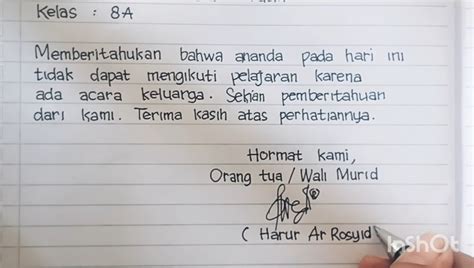 Kelas : 8A
Memberitahukan bahwa ananda pada hari ini
tidak dapat mengikuti pelajaran karena
ada acara keluarga. Sekian pemberitahuan
dari kami. Terima kasih atas perhatiannya.
Hormat kami,
Orang tua / Wali Murid
( Harur Ar Rosyid
InShot